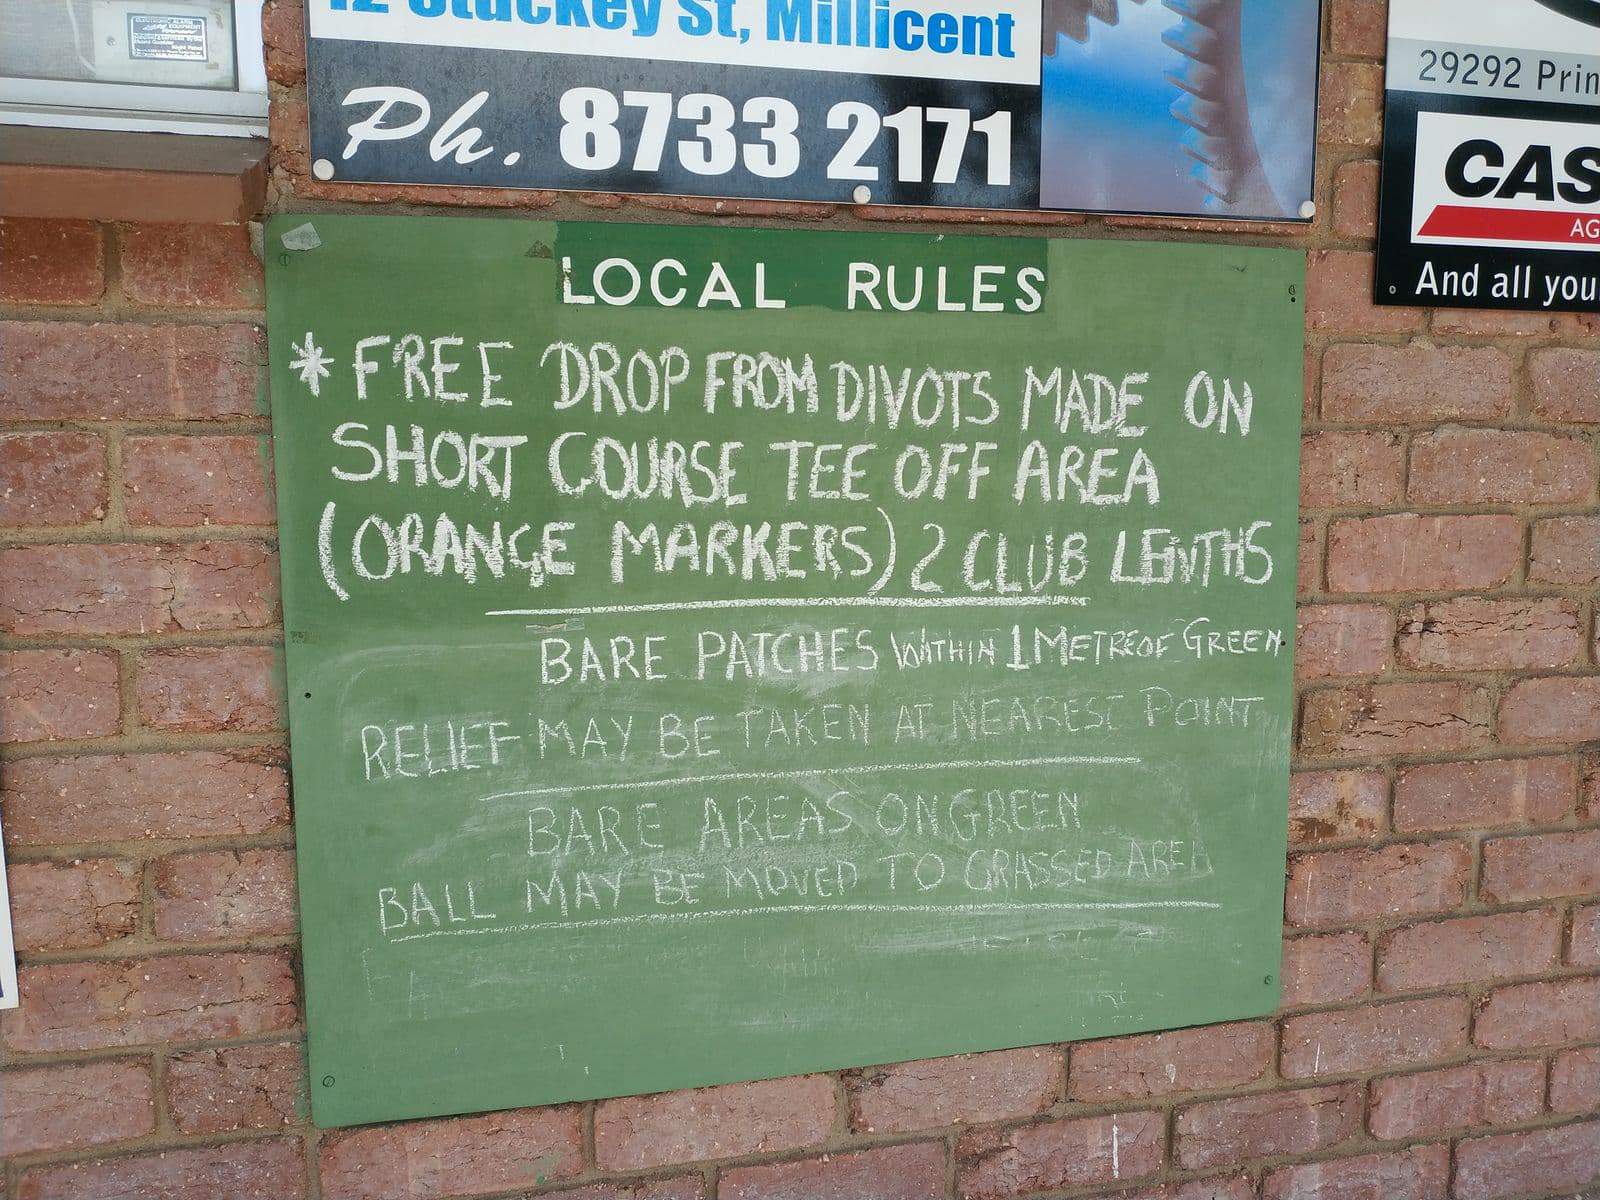 12 Stuckey St, Millicent
Ph. 8733 2171
29292 Prin
CAS
AG
And all you
LOCAL RULES
* FREE DROP FROM DIVOTS MADE ON
SHORT COURSE TEE OFF AREA
(ORANGE MARKERS) 2 CLUB LENTHS
BARE PATCHES WITHIN 1 METRE OF GREEN
RELIEF MAY BE TAKEN AT NEAREST POINT
BARE AREAS ON GREEN
BALL MAY BE MOVED TO GRASSED AREA